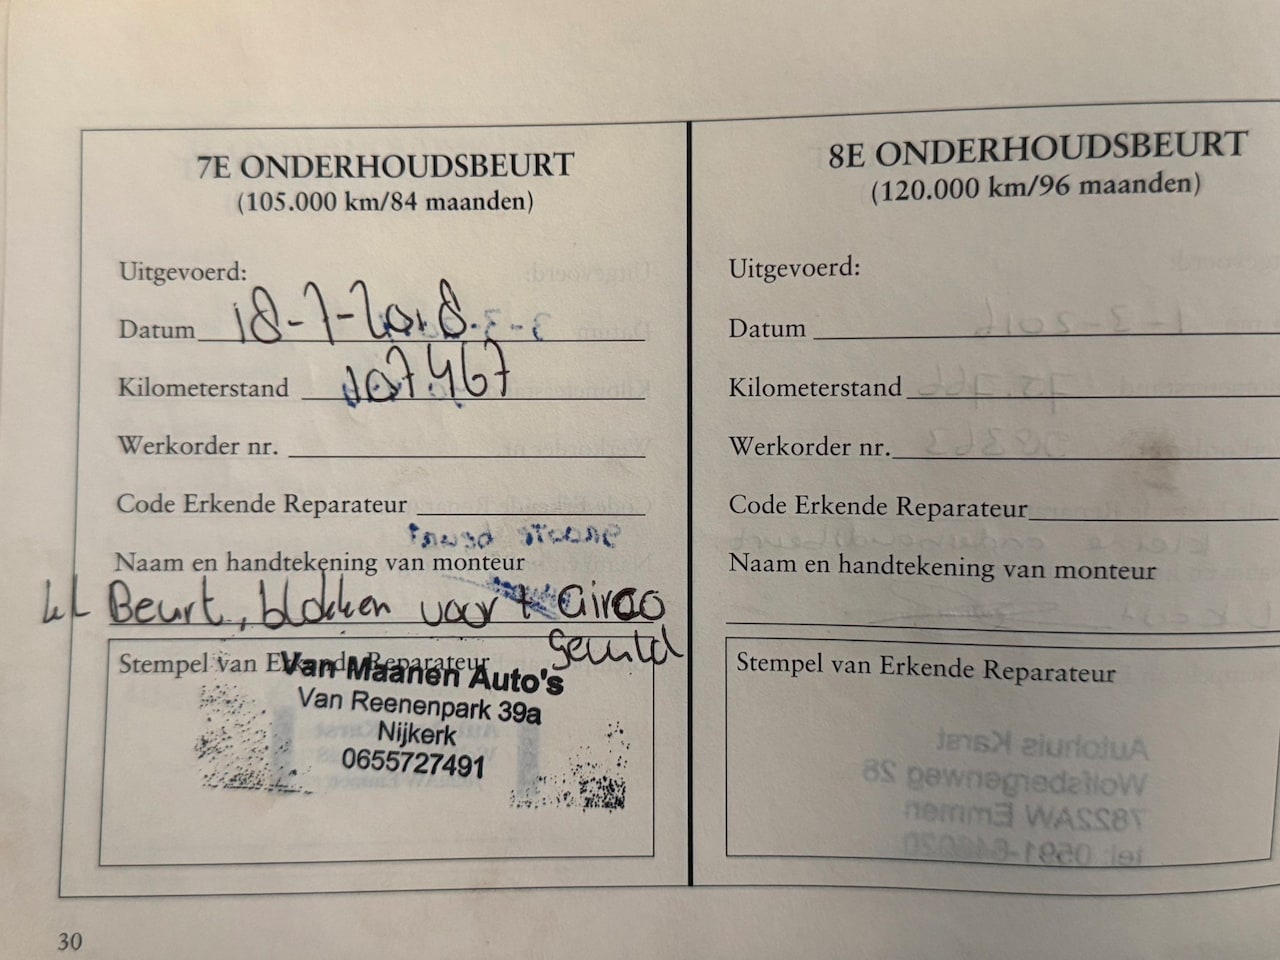 7E ONDERHOUDSBEURT
(105.000 km/84 maanden)
Uitgevoerd:
Datum 18-7-2018
Kilometerstand 107.467
Werkorder nr.
Code Erkende Reparateur
Naam en handtekening van monteur
kl Beurt, blokken voor + airco
gevuld
Stempel van Erkende Reparateur
Van Maanen Auto's
Van Reenenpark 39a
Nijkerk
0655727491
30
8E ONDERHOUDSBEURT
(120.000 km/96 maanden)
Uitgevoerd:
Datum
Kilometerstand
Werkorder nr.
Code Erkende Reparateur
Naam en handtekening van monteur
Stempel van Erkende Reparateur
Autohuis Karst
Wolfsbergenweg 26
7822AW Emmen